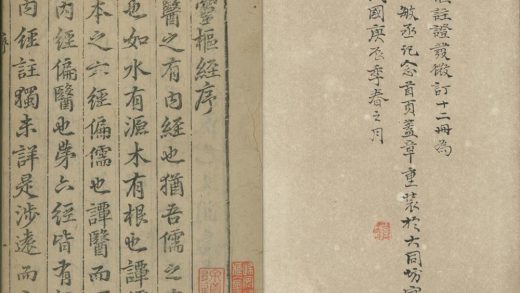 註證發微訂十二冊為
敏丞紀念首頁蓋章重裝於大同坊
國庚辰季春之月
靈樞經序
醫之有內經也猶吾儒之
也如水有源木有根也譚
本之六經偏儒也譚醫而
內經偏醫也第六經皆有
內經註獨未詳是涉遠而
序